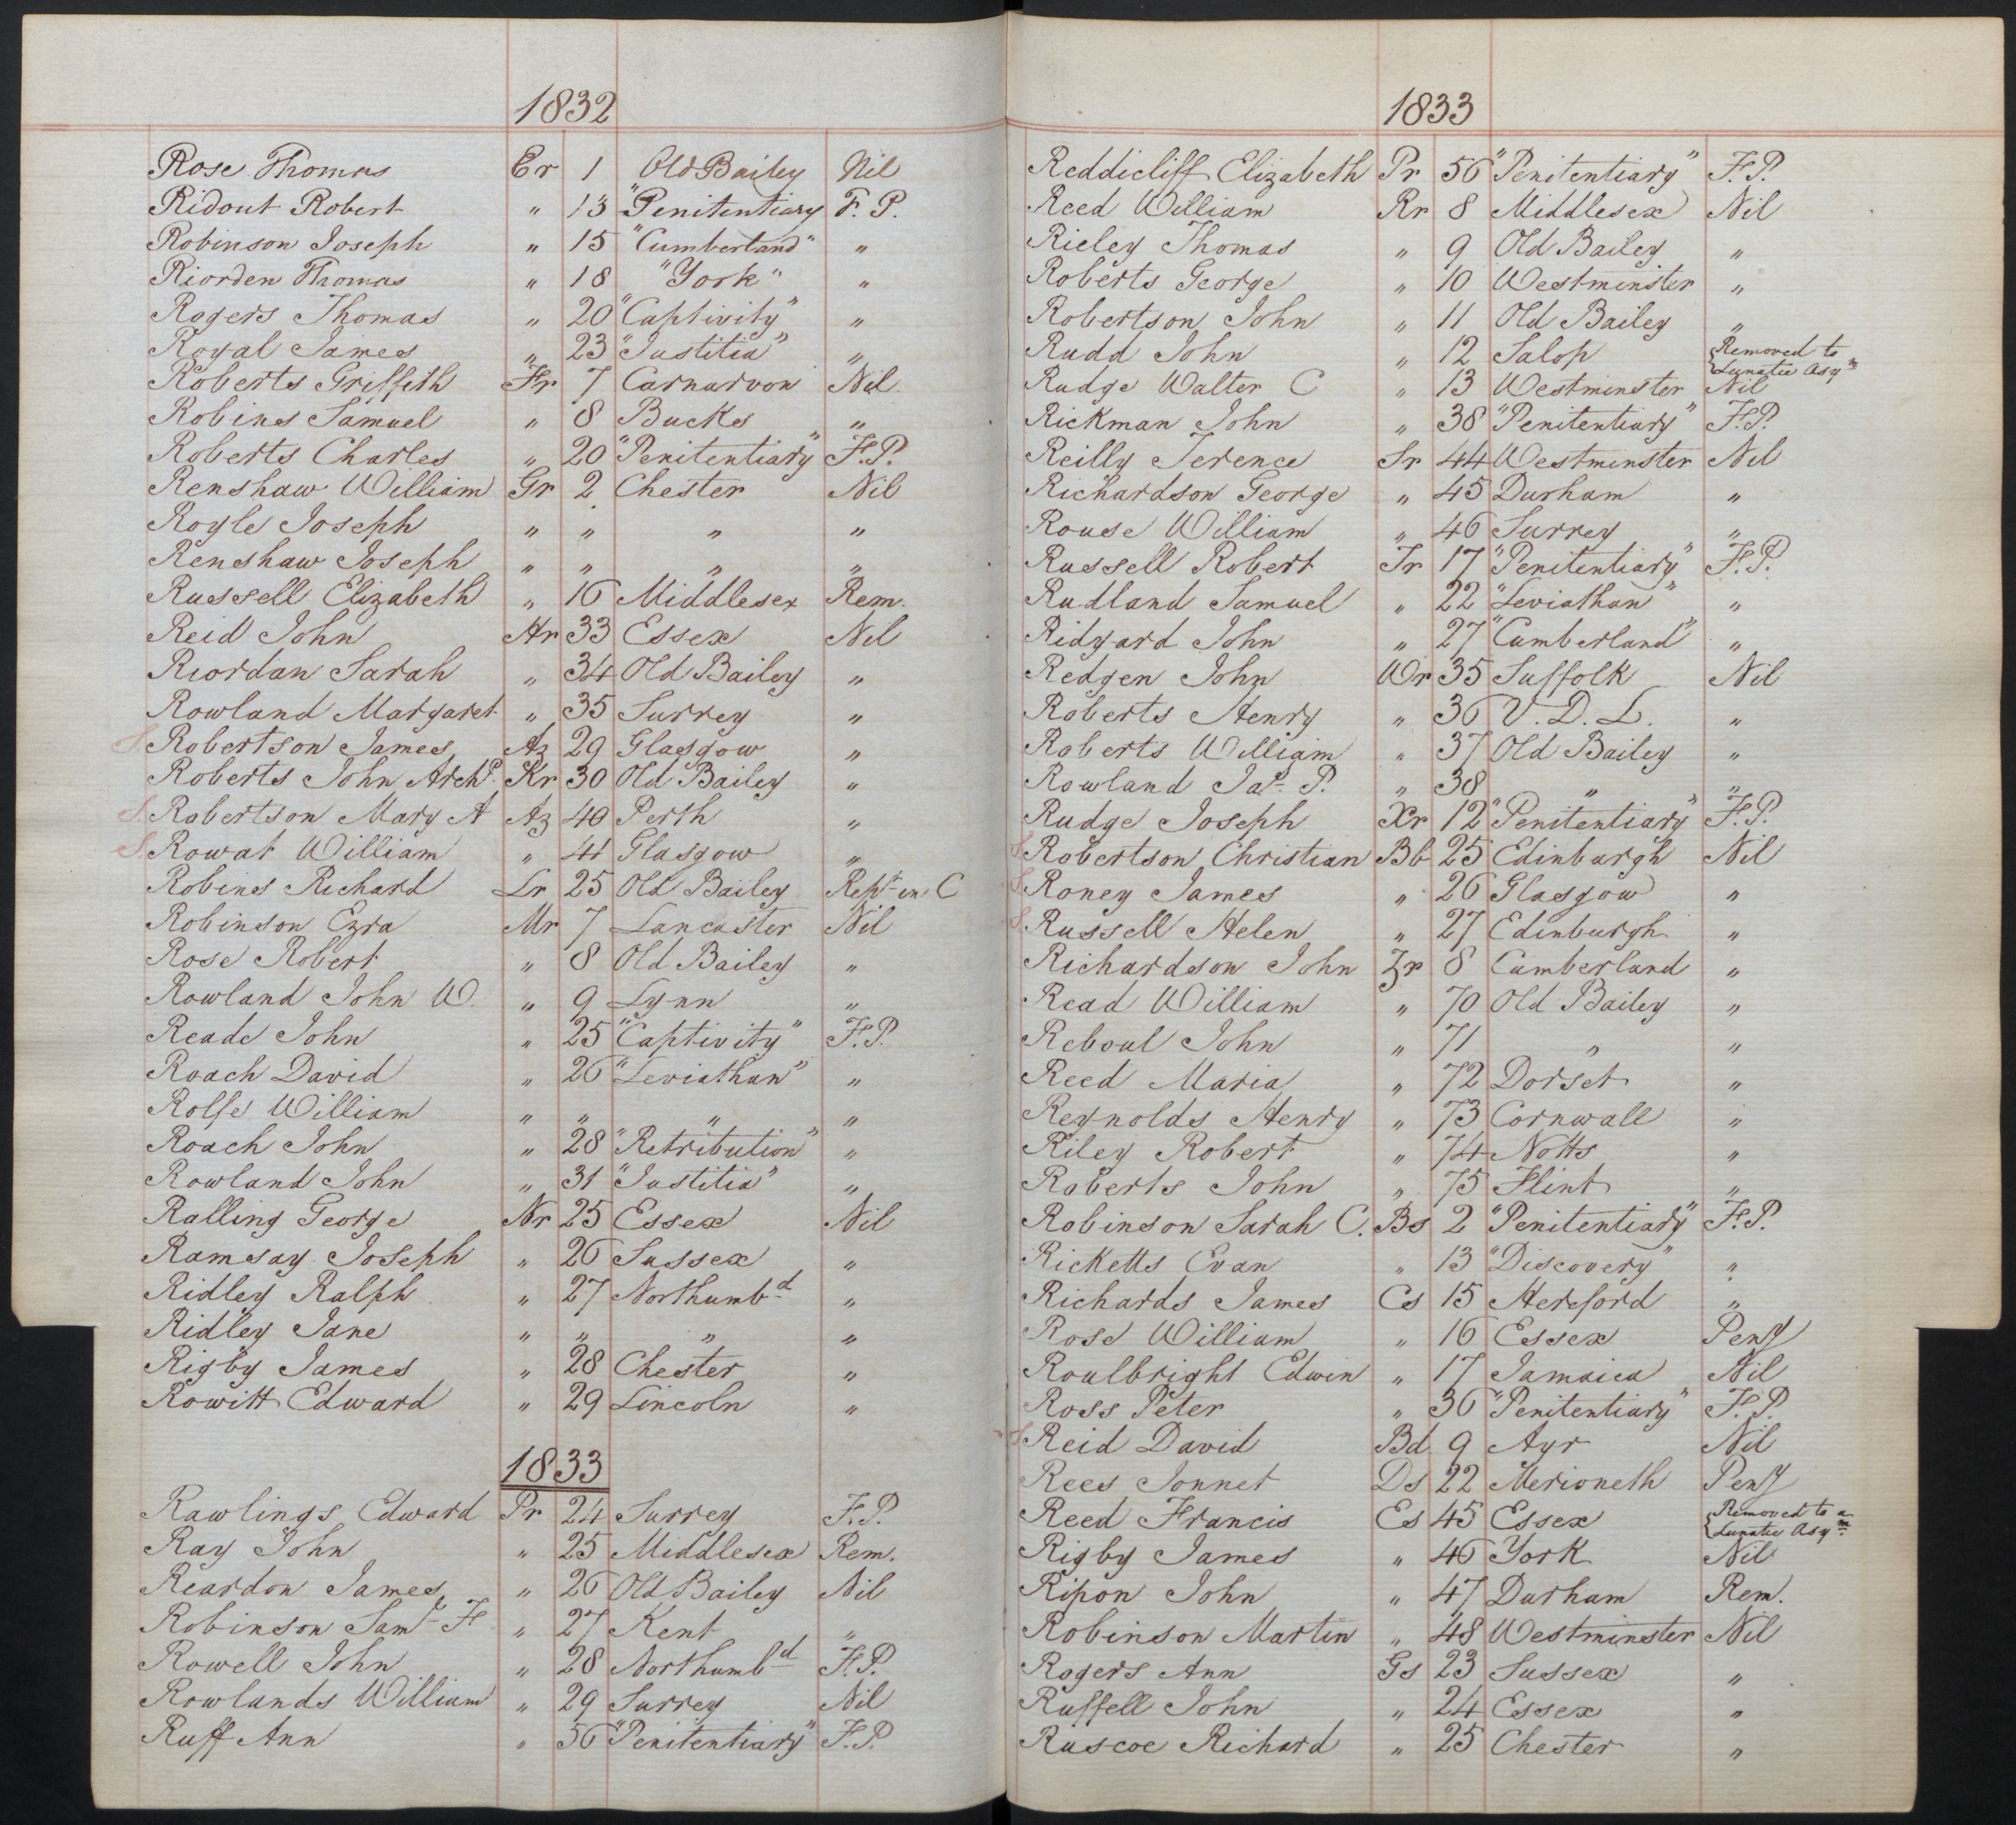 1832
Rose Thomas Er 1 Old Bailey Nil
Ridout Robert " 13 "Penitentiary F. P.
Robinson Joseph " 15 "Cumberland" "
Riorden Thomas " 18 "York" "
Rogers Thomas " 20 "Captivity" "
Royal James " 23 "Justitia" "
Roberts Griffith Fr 7 Carnarvon Nil
Robins Samuel " 8 Bucks "
Roberts Charles " 20 "Penitentiary" F.P.
Renshaw William Gr 2 Chester Nil
Royle Joseph " " " "
Renshaw Joseph " " " "
Russell Elizabeth " 16 Middlesex Rem.
Reid John Hr 33 Essex Nil
Riordan Sarah " 34 Old Bailey "
Rowland Margaret " 35 Surrey "
S. Robertson James Az 29 Glasgow "
Roberts John Archd. Kr 30 Old Bailey "
S. Robertson Mary A Az 40 Perth "
S. Rowat William " 41 Glasgow "
Robins Richard Lr 25 Old Bailey Rept in C
Robinson Ezra Mr 7 Lancaster Nil
Rose Robert " 8 Old Bailey "
Rowland John W. " 9 Lynn "
Reade John " 25 "Captivity" F.P.
Roach David " 26 "Leviathan" "
Rolfe William " " " "
Roach John " 28 "Retribution" "
Rowland John " 31 "Justitia" "
Ralling George Nr 25 Essex Nil
Ramsay Joseph " 26 Sussex "
Ridley Ralph " 27 Northumbd "
Ridley Jane " " " "
Rigby James " 28 Chester "
Rowitt Edward " 29 Lincoln "
1833
Rawlings Edward Pr 24 Surrey F.P.
Ray John " 25 Middlesex Rem.
Reardon James " 26 Old Bailey Nil
Robinson Saml F " 27 Kent "
Rowell John " 28 Northumbd F.P.
Rowlands William " 29 Surrey Nil
Ruff Ann " 56 "Penitentiary" F.P.
1833
Reddicliff Elizabeth Pr 56 "Penitentiary" F.P.
Reed William Rr 8 Middlesex Nil
Rieley Thomas " 9 Old Bailey "
Roberts George " 10 Westminster "
Robertson John " 11 Old Bailey "
Rudd John " 12 Salop {Removed to
Lunatic Asym
Rudge Walter C " 13 Westminster Nil
Rickman John " 38 "Penitentiary" F.P.
Reilly Terence Sr 44 Westminster Nil
Richardson George " 45 Durham "
Rouse William " 46 Surrey "
Russell Robert Tr 17 "Penitentiary" F.P.
Rudland Samuel " 22 "Leviathan" "
Ridyard John " 27 "Cumberland" "
Redgen John Wr 35 Suffolk Nil
Roberts Henry " 36 V. D. L. "
Roberts William " 37 Old Bailey "
Rowland Jas. P. " 38 " "
Rudge Joseph Xr 12 "Penitentiary" F.P.
S. Robertson Christian Bb 25 Edinburgh Nil
S. Roney James " 26 Glasgow "
S. Russell Helen " 27 Edinburgh "
Richardson John Zr 8 Cumberland "
Read William " 70 Old Bailey "
Reboul John " 71 " "
Reed Maria " 72 Dorset "
Reynolds Henry " 73 Cornwall "
Riley Robert " 74 Notts "
Roberts John " 75 Flint "
Robinson Sarah C. Bs 2 "Penitentiary" F.P.
Ricketts Evan " 13 "Discovery" "
Richards James Cs 15 Hereford "
Rose William " 16 Essex Peny
Roulbright Edwin " 17 Jamaica Nil
Ross Peter " 36 "Penitentiary" F.P.
S. Reid David Bd 9 Ayr Nil
Rees Jonnet Ds 22 Merioneth Peny
Reed Francis Es 45 Essex {Removed to a
Lunatic Asym.
Rigby James " 46 York Nil
Ripon John " 47 Durham Rem.
Robinson Martin " 48 Westminster Nil
Rogers Ann Gs 23 Sussex "
Ruffell John " 24 Essex "
Ruscoe Richard " 25 Chester "